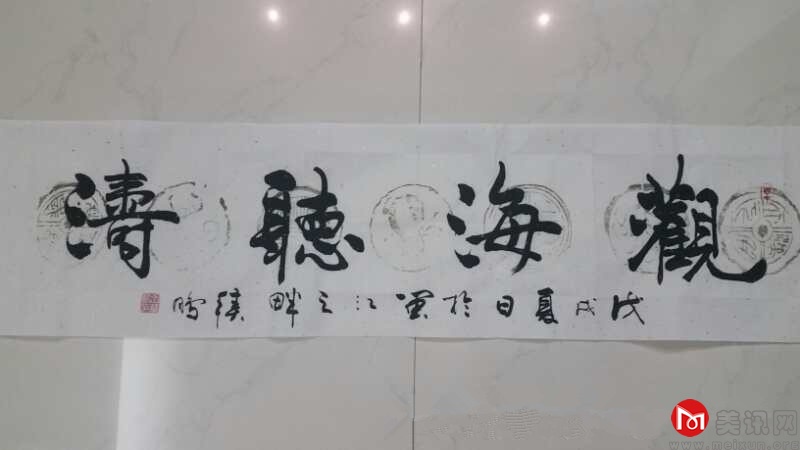 觀海聽濤
戊戌夏日於江之畔
美讯网